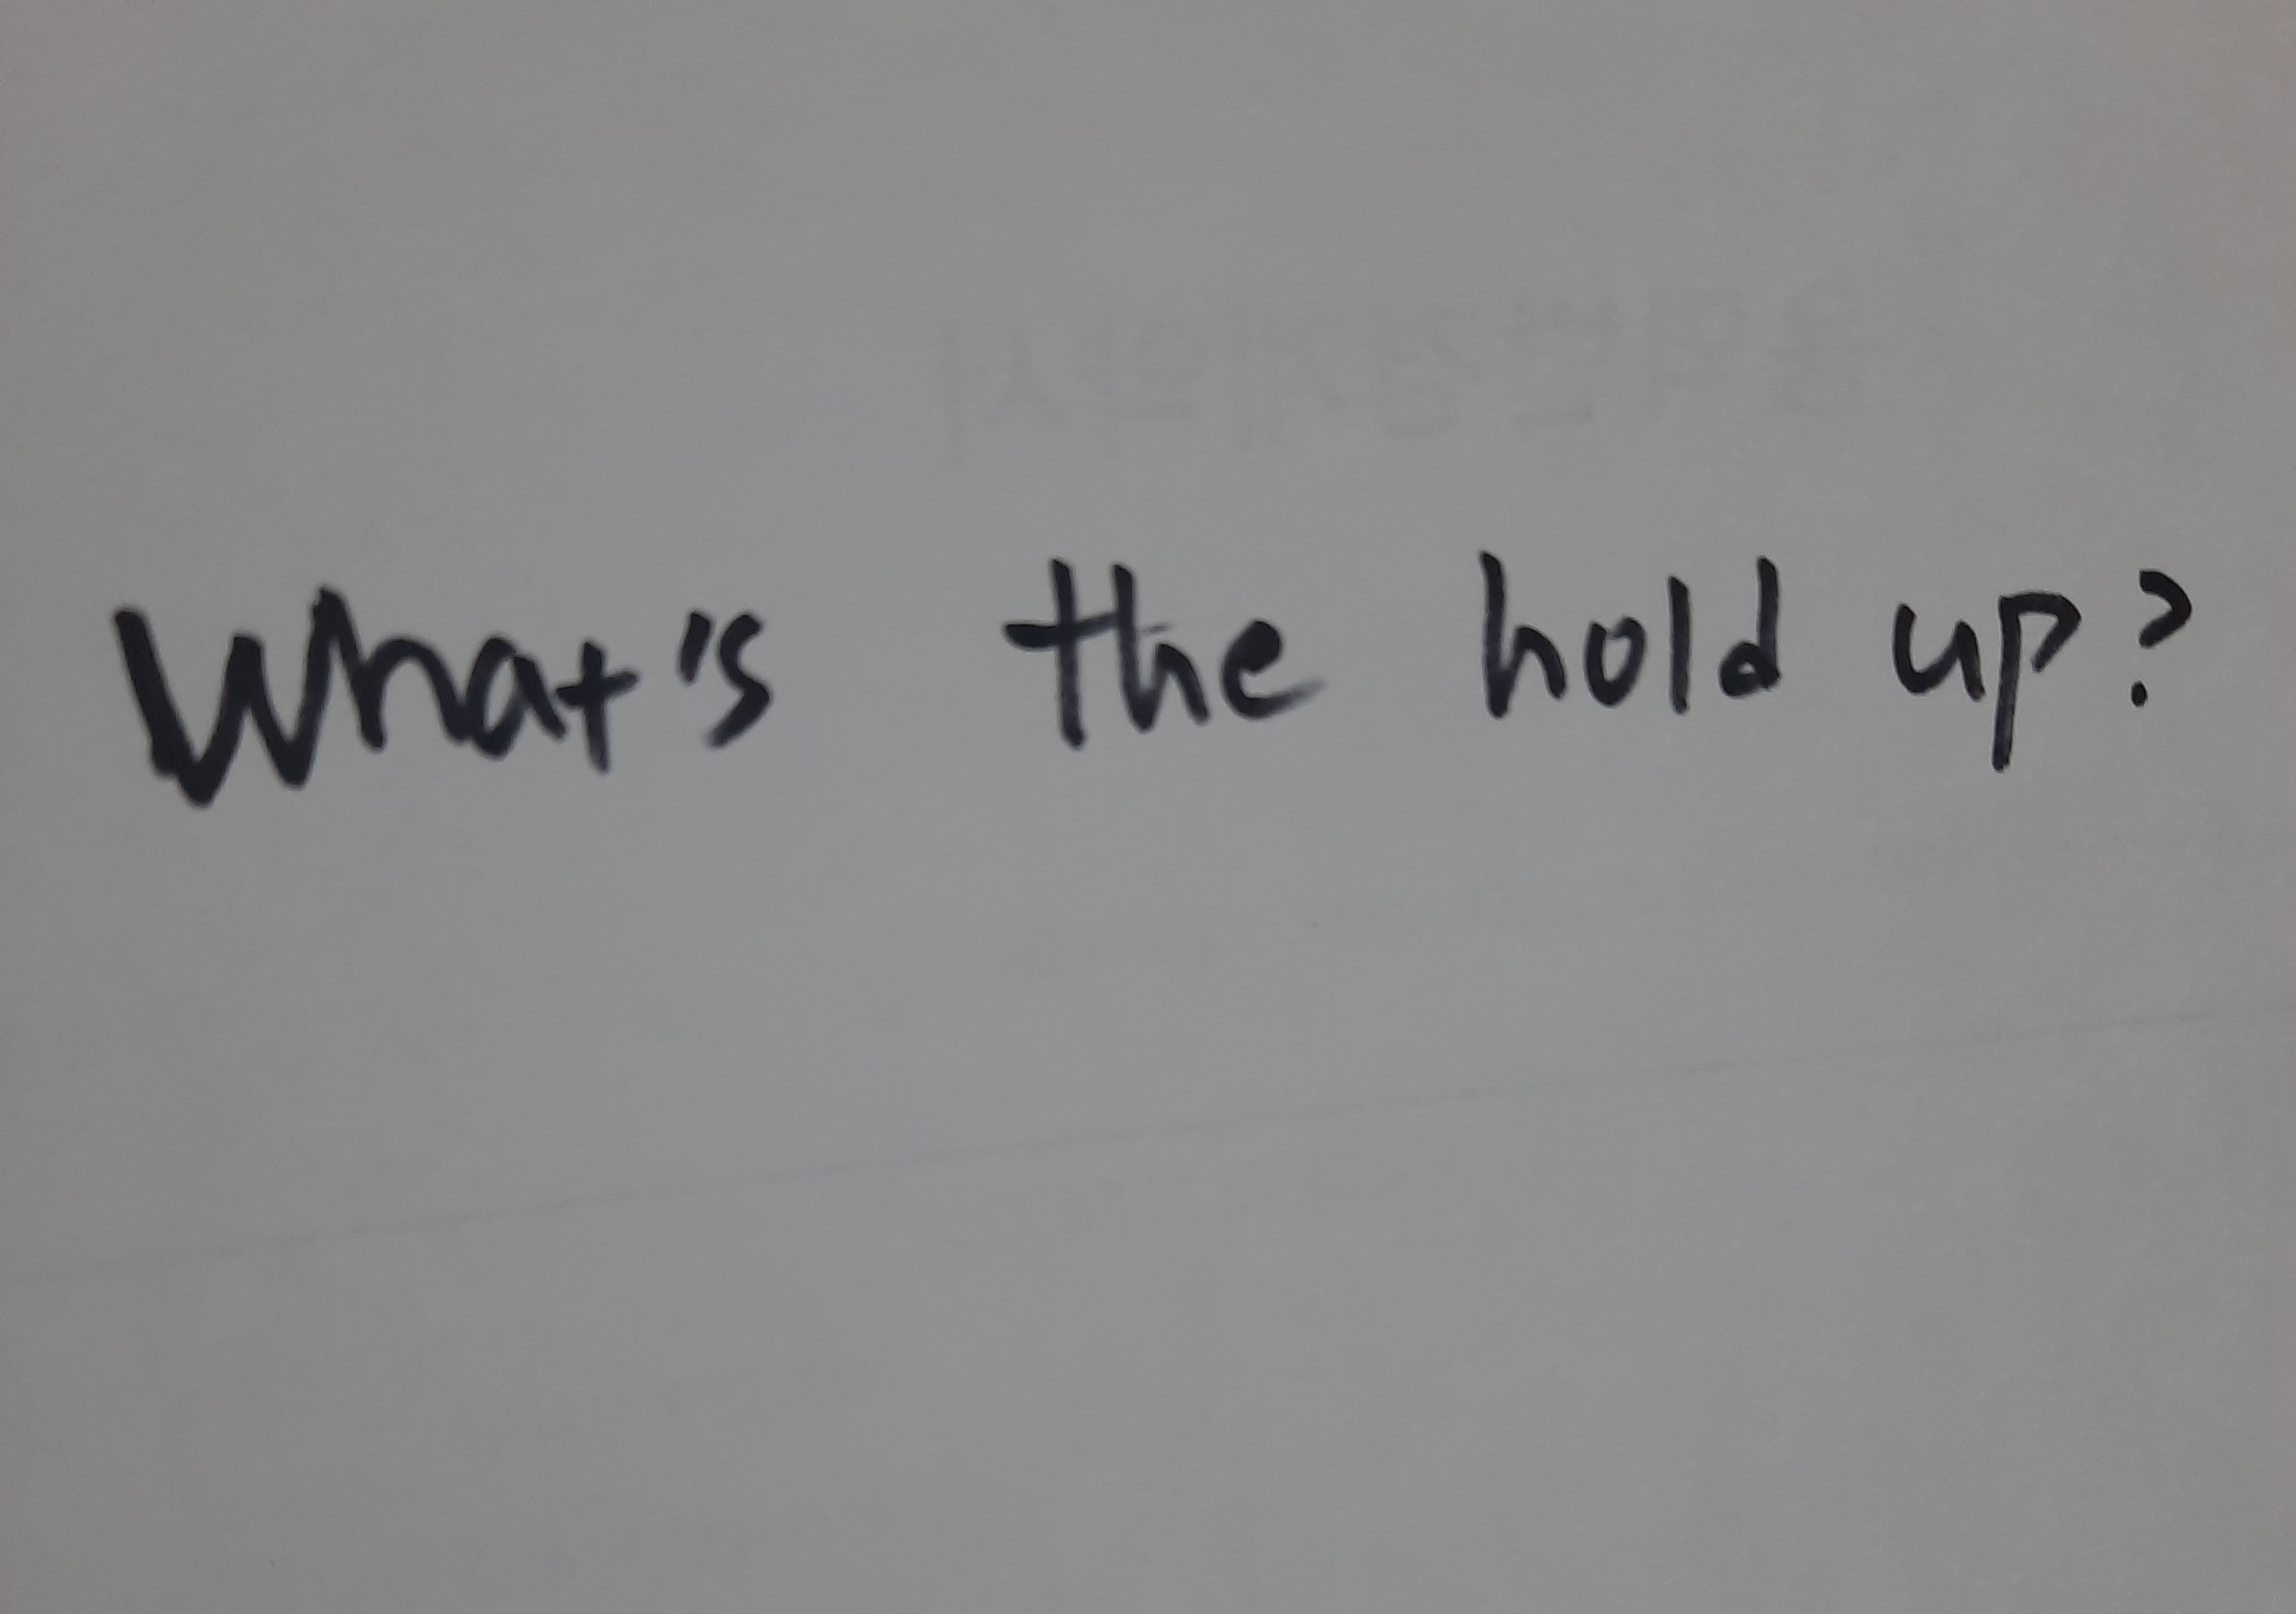 What's the hold up?